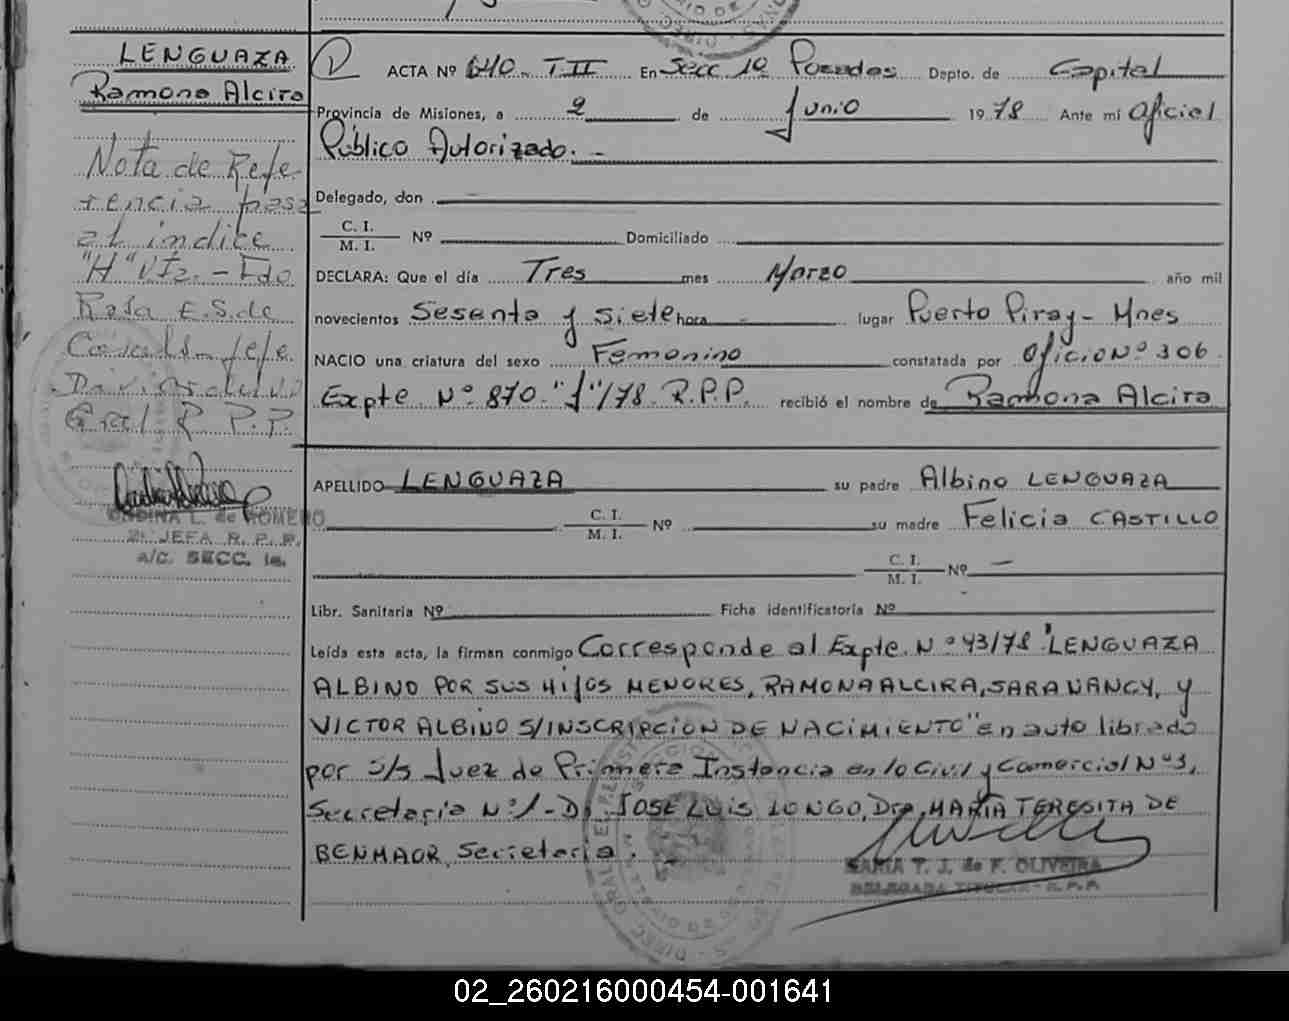 LENGUAZA
Ramona Alcira
Nota de Refe-
rencia pasa
al indice
"H" Vta. - Fdo
Rosa E.S. de
Jefe
Div.
Gral R.P.P.
ONDINA L. de ROMERO
2a. JEFA R. P. P.
a/c. SECC. 1a.
ACTA Nº 640 - T II En Secc 1º Posadas Depto. de Capital
Provincia de Misiones, a 2 de Junio 1978 Ante mi Oficial
Público Autorizado. -
Delegado, don
C. I.
M. I. Nº Domiciliado
DECLARA: Que el día Tres mes Marzo año mil
novecientos Sesenta y siete hora - lugar Puerto Piray - Mnes
NACIO una criatura del sexo Femenino constatada por Oficio Nº 306
Expte Nº 870 "J"/78. R.P.P. recibió el nombre de Ramona Alcira
APELLIDO LENGUAZA su padre Albino LENGUAZA
C. I.
M. I. Nº su madre Felicia CASTILLO
C. I.
M. I. Nº —
Libr. Sanitaria Nº Ficha identificatoria Nº
Leída esta acta, la firman conmigo Corresponde al Expte. Nº 43/78 "LENGUAZA
ALBINO POR SUS HIJOS MENORES, RAMONA ALCIRA, SARA NANCY, y
VICTOR ALBINO S/INSCRIPCION DE NACIMIENTO" en auto librado
por S/S Juez de Primera Instancia en lo Civil y Comercial Nº 3,
Secretaria Nº 1 - Dr. JOSE LUIS LONGO, Dra. MARIA TERESITA DE
BENMAOR, Secretaria. -
MARIA T. J. de F. OLIVEIRA
DELEGADA TITULAR - R.P.P.
02_260216000454-001641